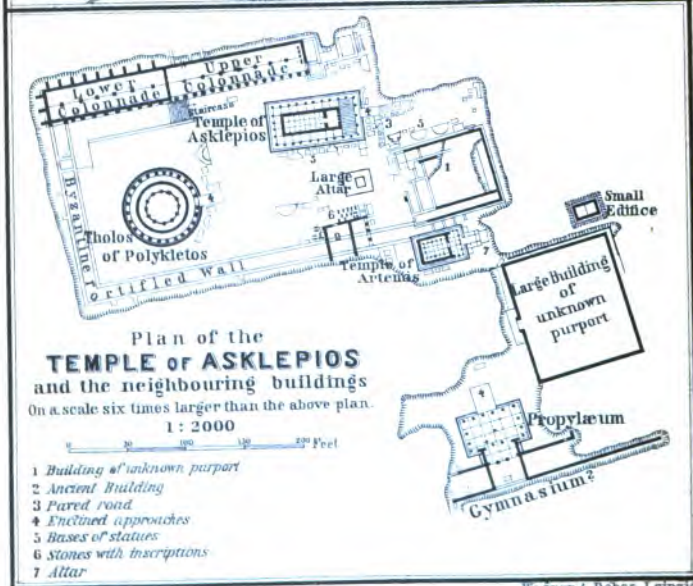 Lower
Colonnade
Upper
Colonnade
Staircase
Temple of
Asklepios
4
3
5
1
5
Large
Altar
6
2
Small
Edifice
Byzantine Fortified Wall
4
Tholos
of Polykletos
Temple of
Artemis
7
Large Building
of
unknown
purport
Plan of the
TEMPLE OF ASKLEPIOS
and the neighbouring buildings
On a scale six times larger than the above plan.
1 : 2000
0 50 100 150 200 Feet
1 Building of unknown purport
2 Ancient Building
3 Paved road
4 Enclined approaches
5 Bases of statues
6 Stones with inscriptions
7 Altar
4
Propylæum
Gymnasium?